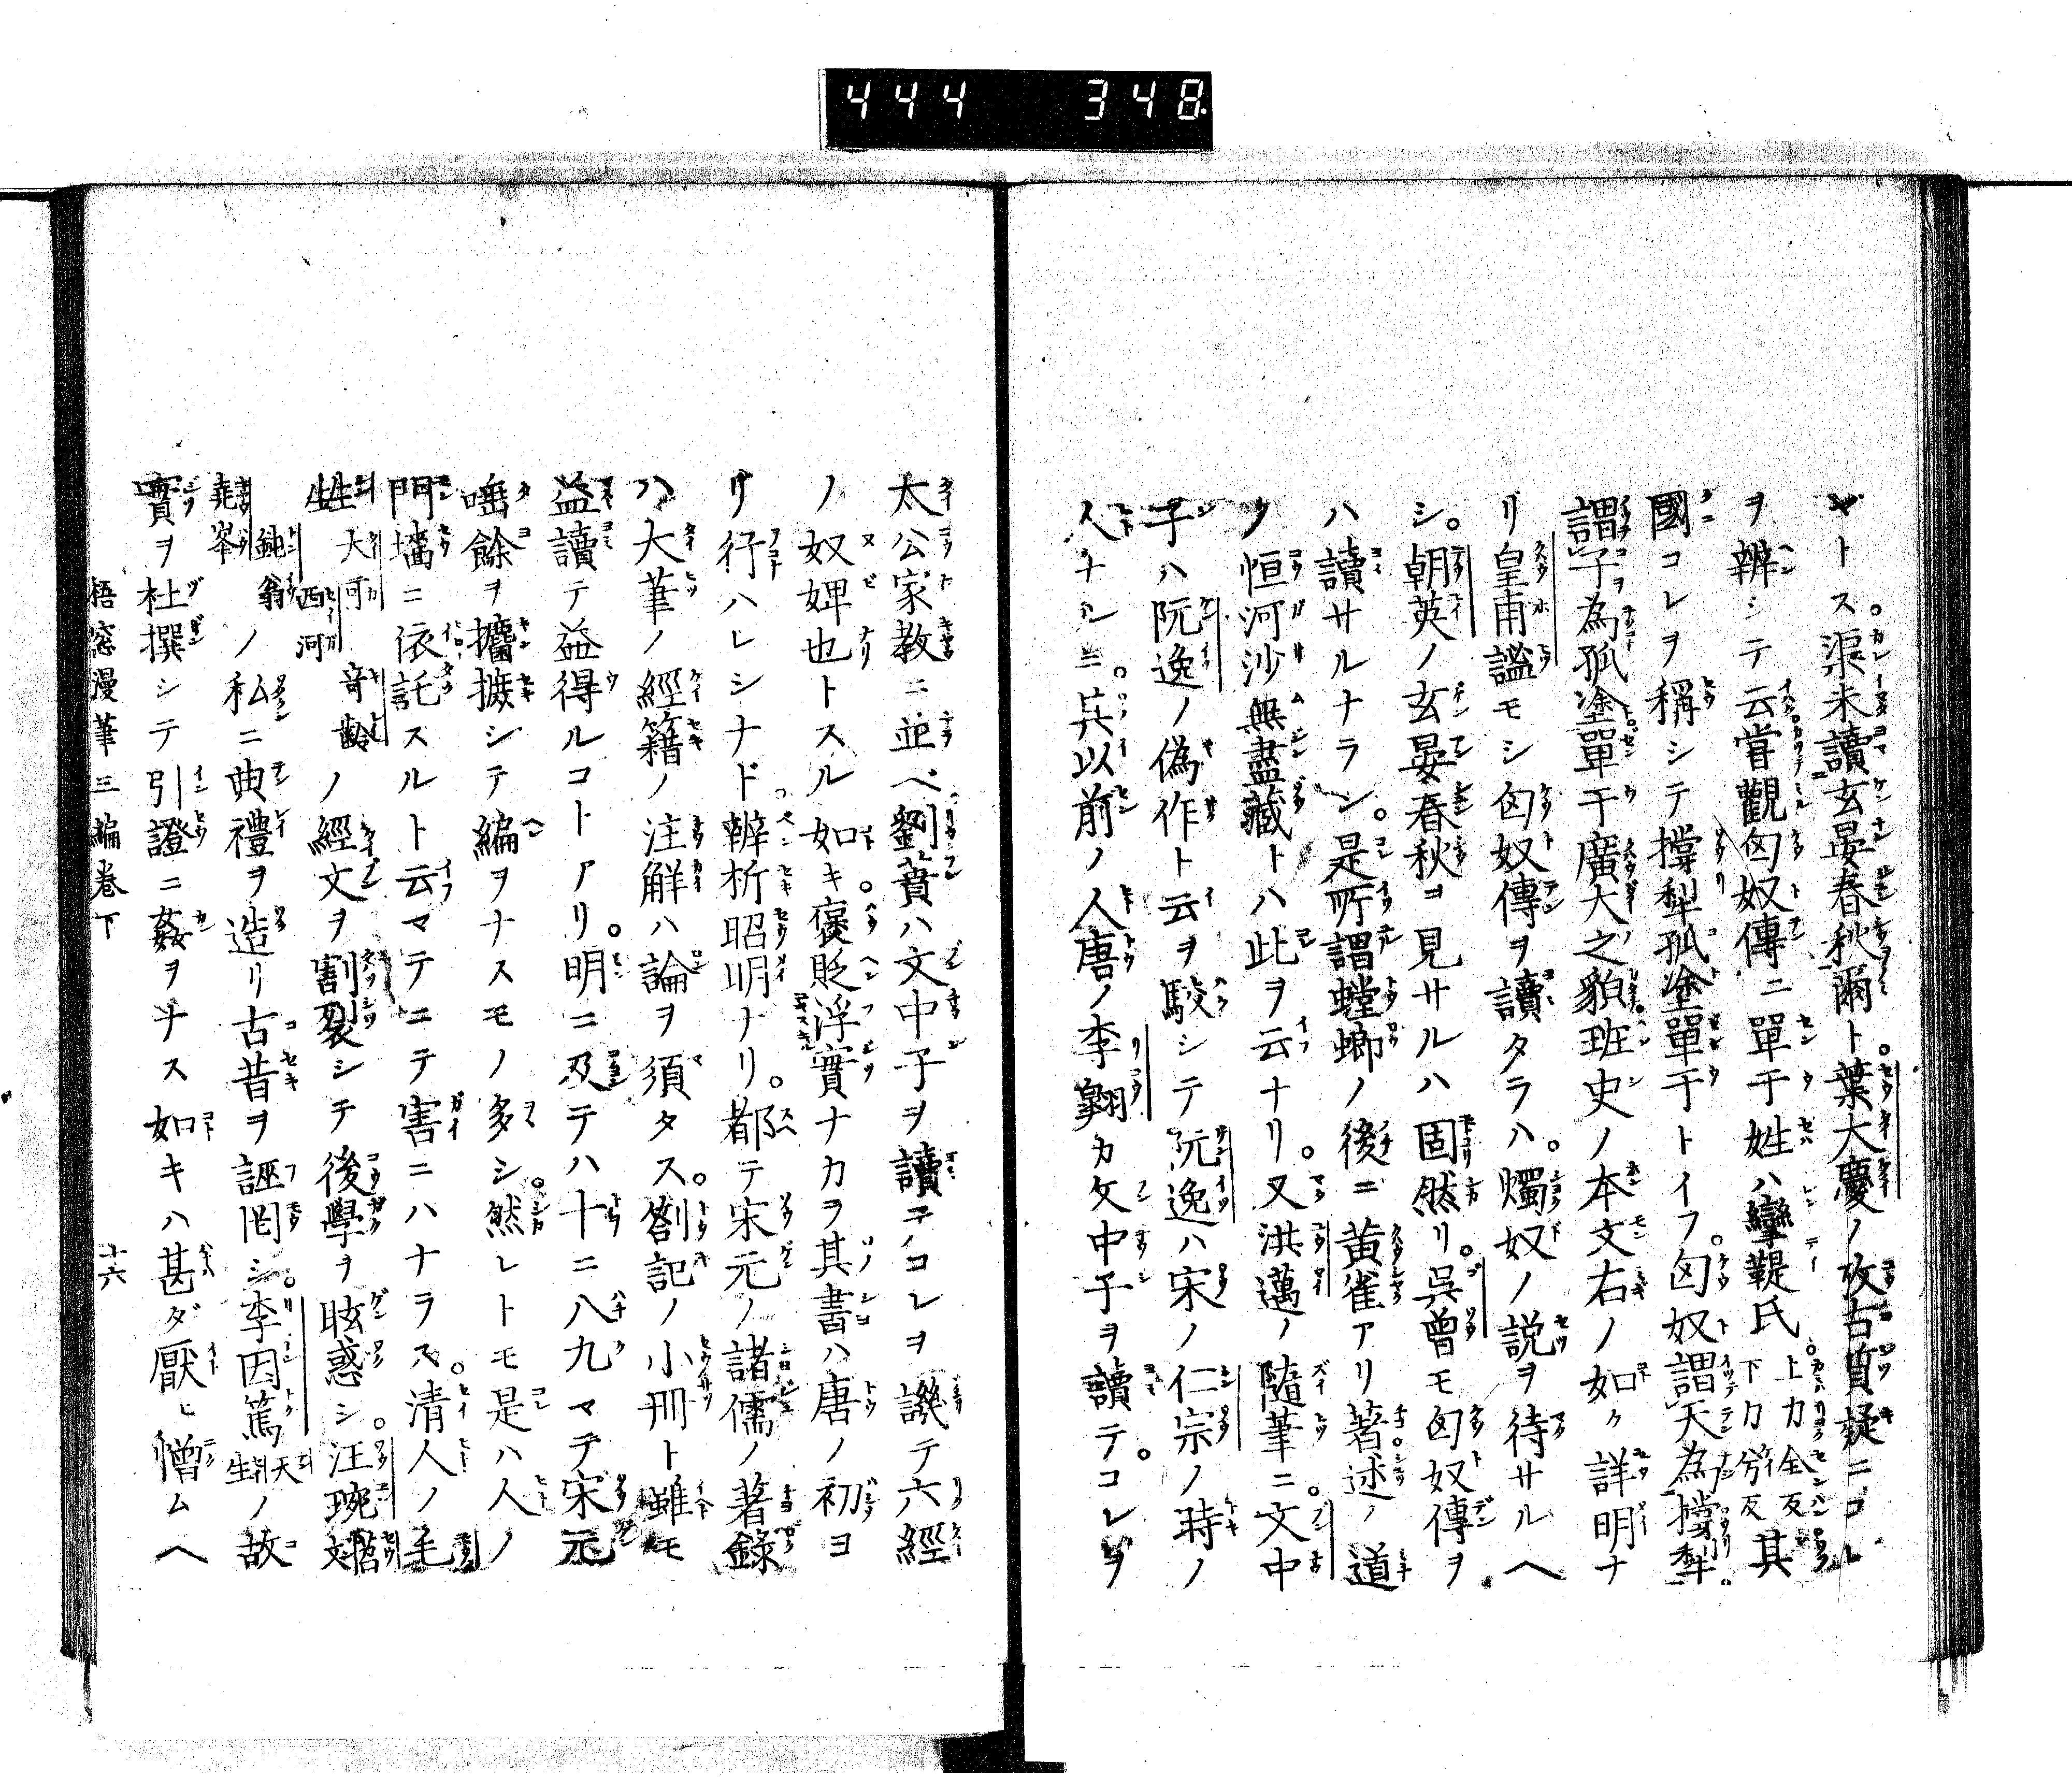 444 348
ヤトス。渠未讀玄晏春秋爾ト。葉大慶ノ攷古質疑ニコレ
ヲ辨シテ云嘗觀匈奴傳ニ單于姓ハ攣鞮氏。上力全反下力兮反其
國コレヲ稱シテ撐犁孤塗單于トイフ。匈奴謂天為撐犁
謂子為孤塗單于廣大之貌班史ノ本文右ノ如ク詳明ナ
リ皇甫謐モシ匈奴傳ヲ讀タラハ。燭奴ノ説ヲ待サルヘ
シ。朝英ノ玄晏春秋ヲ見サルハ固然リ。呉曾モ匈奴傳ヲ
ハ讀サルナラン。是所謂螳螂ノ後ニ黄雀アリ著述ノ道
ノ恒河沙無盡藏トハ此ヲ云ナリ。又洪邁ノ隨筆ニ。文中
子ハ阮逸ノ偽作ト云ヲ駮シテ阮逸ハ宋ノ仁宗ノ時ノ
人ナルニ。其以前ノ人唐ノ李翺カ文中子ヲ讀テ。コレヲ
太公家教ニ並ベ劉蕡ハ文中子ヲ讀テコレヲ譏テ六經
ノ奴婢也トスル如キ。褒貶浮實ナカヲ其書ハ唐ノ初ヨ
リ行ハレシナド辨析昭明ナリ。都テ宋元ノ諸儒ノ著錄
ハ大筆ノ經籍ノ注解ハ論ヲ須タス。劄記ノ小冊ト雖モ
益讀テ益得ルコトアリ。明ニ及テハ十ニ八九マテ宋元
唾餘ヲ攟摭シテ編ヲナスモノ多シ。然レトモ是ハ人ノ
門墻ニ依託スルト云マテニテ害ニハナラス。清人ノ毛
甡大可西河竒齡ノ經文ヲ割裂シテ後學ヲ眩惑シ。汪琬苕文
堯峯鈍翁ノ私ニ典禮ヲ造リ古昔ヲ誣罔シ。李因篤天生ノ故
實ヲ杜撰シテ引證ニ姦ヲナス如キハ甚ダ厭ヒ憎ムヘ
梧窓漫筆三編卷下 十六